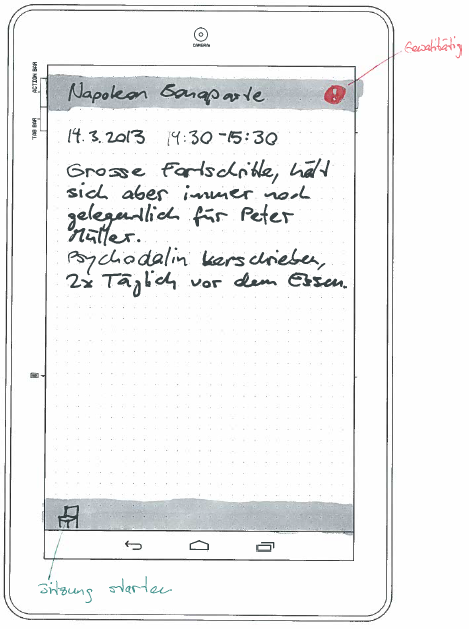 CAMERA
ACTION BAR
TAB BAR
Gewalttätig
Napoleon Bonaparte
!
14.3.2013 14:30-15:30
Grosse Fortschritte, hält
sich aber immer noch
gelegentlich für Peter
Müller.
Psychodalin verschrieben,
2x Täglich vor dem Essen.
Sitzung starten